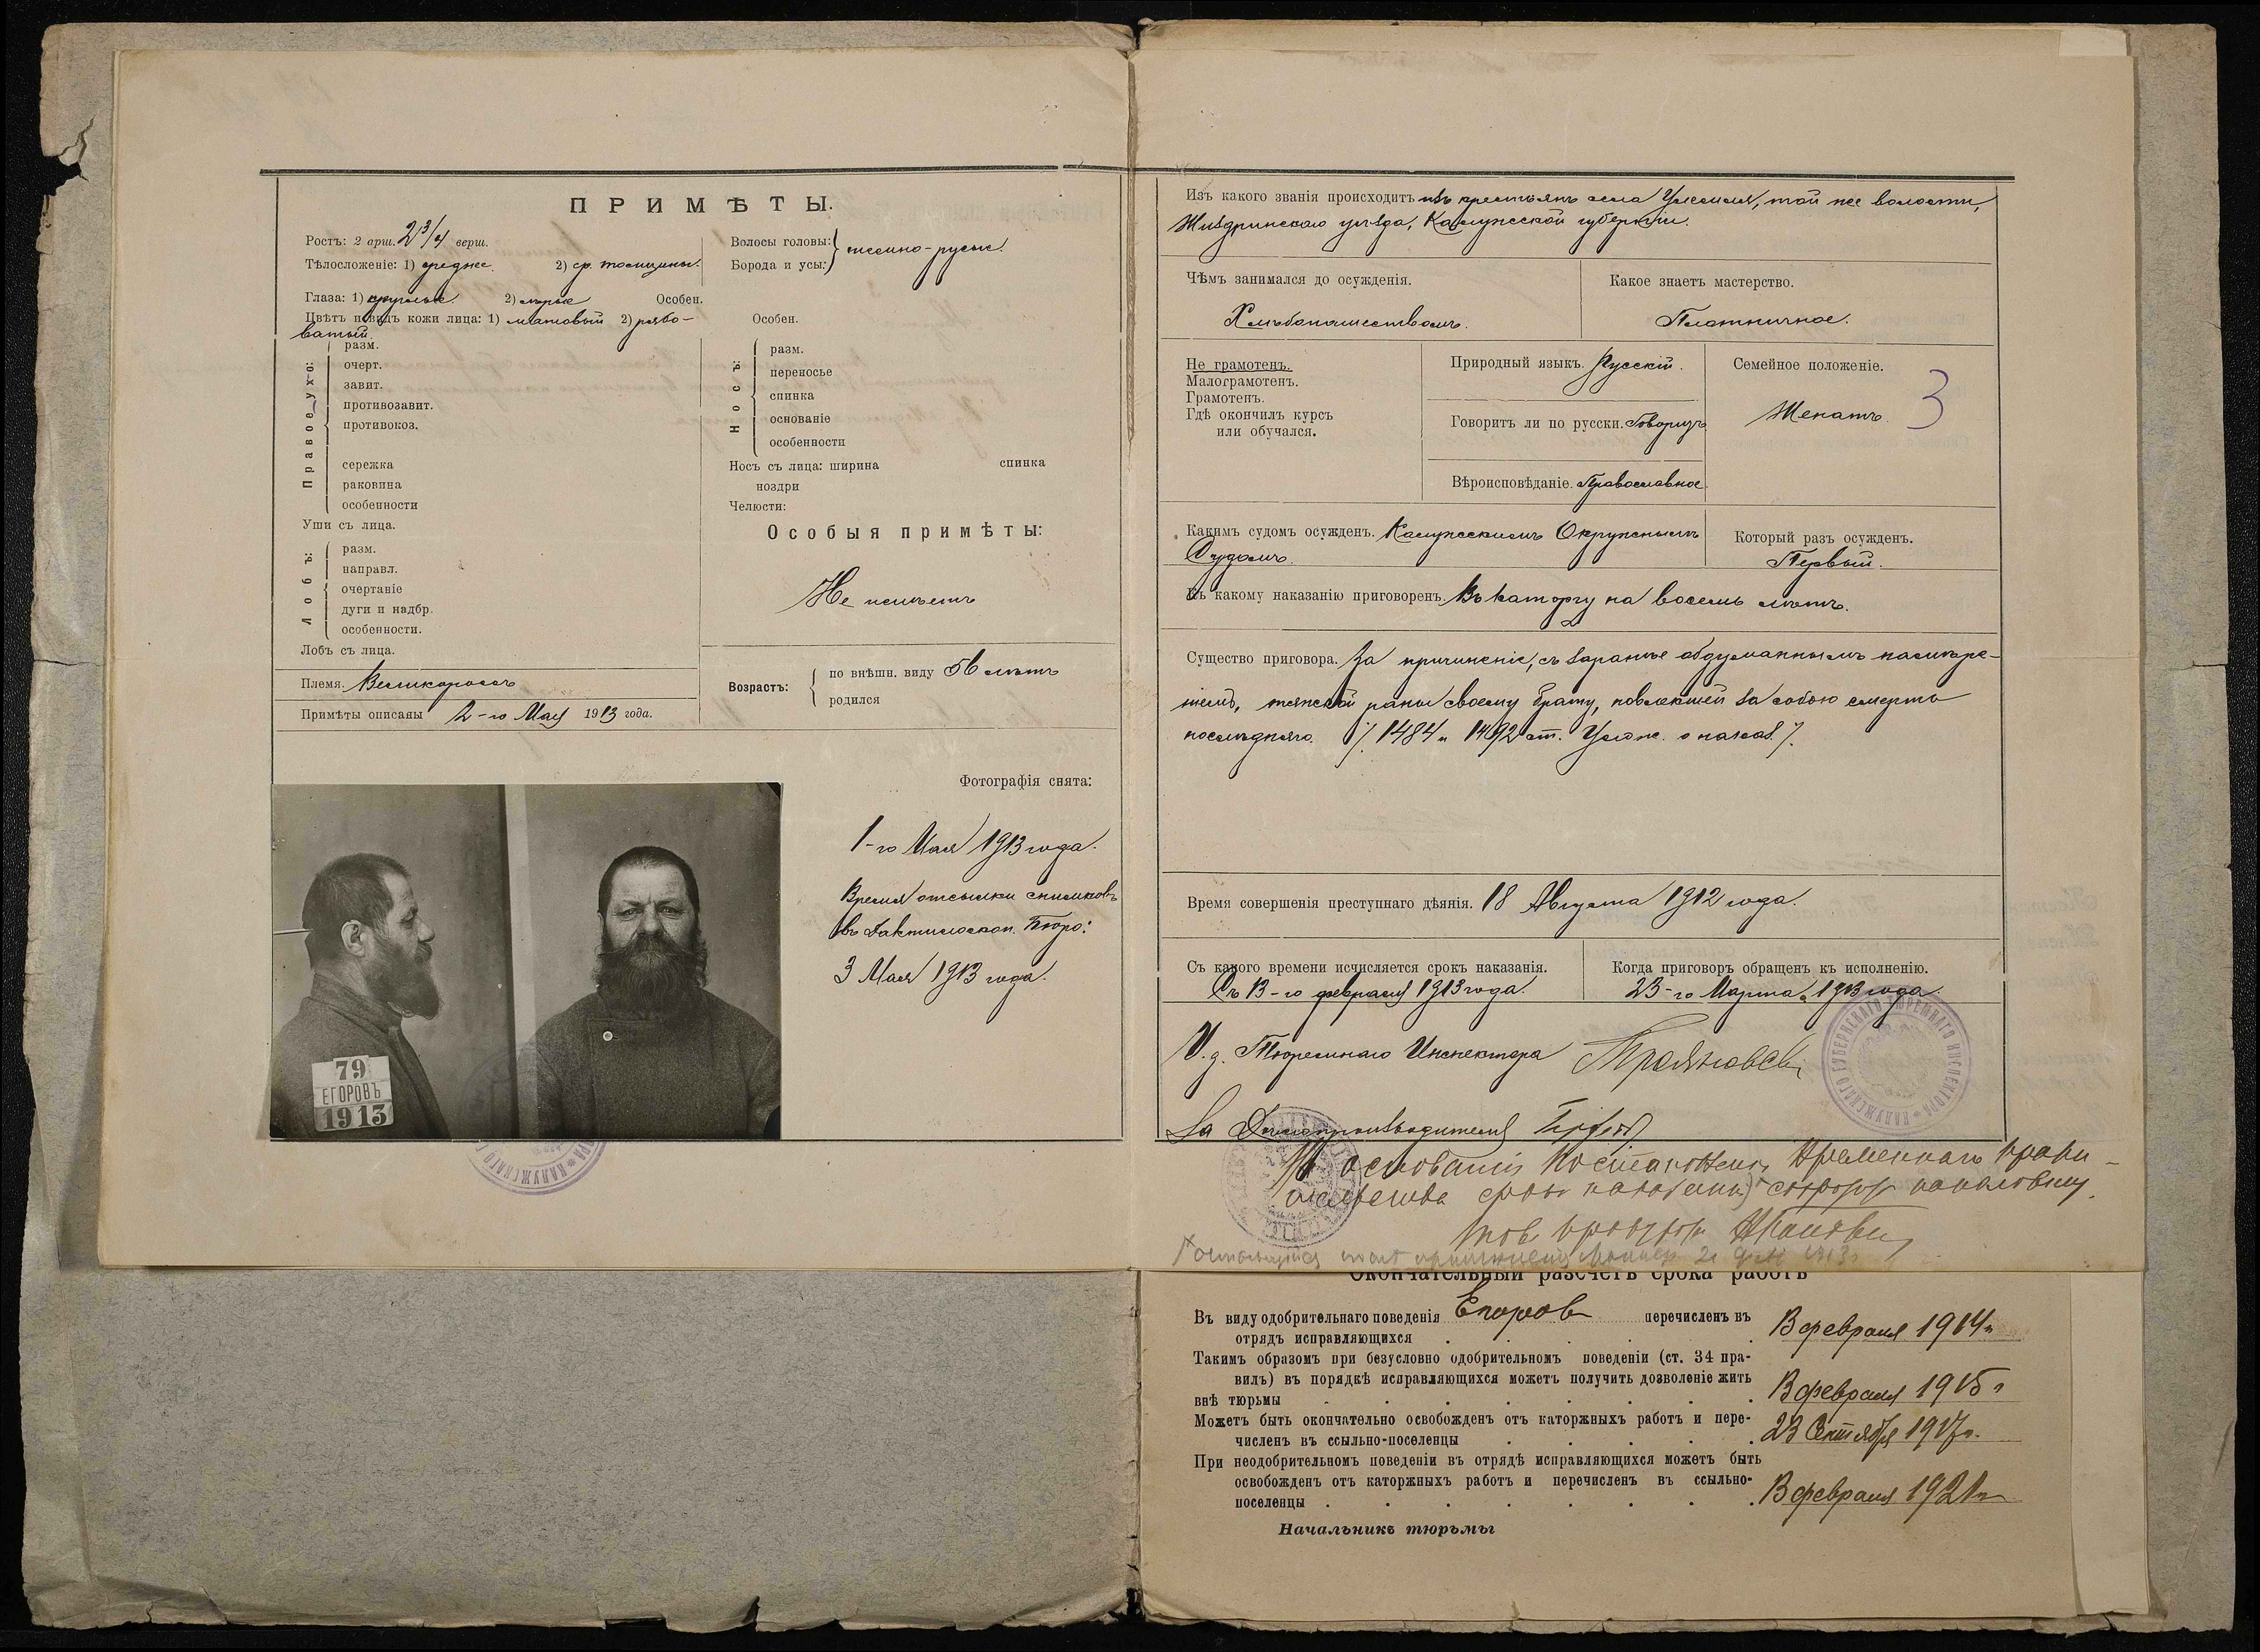 ПРИМѢТЫ.
Ростъ: 2 арш. 2 3/4 верш.
Тѣлосложеніе: 1) среднее. 2) ср. толщины.
Глаза: 1) круглые. 2) сѣрые Особен.
Цвѣтъ и видъ кожи лица: 1) матовый 2) рябо-
ватый. Особен.
Волосы головы:
Борода и усы: } темно-русые.
Правое ухо:
разм.
очерт.
завит.
противозавит.
противокоз.
сережка
раковина
особенности
Уши съ лица.
Лобъ:
разм.
направл.
очертаніе
дуги и надбр.
особенности.
Лобъ съ лица.
Носъ:
разм.
переносье
спинка
основаніе
особенности
Носъ съ лица: ширина спинка
ноздри
Челюсти:
Особыя примѣты:
Не имѣетъ
Племя. Великороссъ
Примѣты описаны 2-го Мая 1913 года.
Возрастъ:
по внѣшн. виду лѣтъ
родился
Фотографія снята:
1-го Мая 1913 года.
Время отсылки снимковъ
въ Дактилоскоп. Бюро:
3 Мая 1913 года.
79
ЕГОРОВЪ
1913
Изъ какого званія происходитъ изъ крестьянъ села той же волости,
Жиздринскаго уѣзда, Калужской губерніи.
Чѣмъ занимался до осужденія.
Хлѣбопашествомъ.
Какое знаетъ мастерство.
Плотничное.
Не грамотенъ.
Малограмотенъ.
Грамотенъ.
Гдѣ окончилъ курсъ
или обучался.
Природный языкъ. Русскій.
Говоритъ ли по русски. Говоритъ
Вѣроисповѣданіе. Православное.
Семейное положеніе.
Женатъ.
3
Какимъ судомъ осужденъ. Калужскимъ Окружнымъ
Судомъ.
Который разъ осужденъ.
Первый.
Къ какому наказанію приговоренъ. Въ каторгу на восемь лѣтъ.
Существо приговора. За причиненіе, съ заранѣе обдуманнымъ намѣре-
ніемъ, тяжкой раны своему брату, повлекшей за собою смерть
послѣдняго. /. 1484 и 1492 ст. Улож. о наказ. /.
Время совершенія преступнаго дѣянія. 18 Августа 1912 года.
Съ какого времени исчисляется срокъ наказанія.
Съ 13-го февраля 1913 года.
Когда приговоръ обращенъ къ исполненію.
23-го Марта 1913 года.
И. д. Тюремнаго Инспектора
За Дѣлопроизводителя
КАЛУЖСКАГО ГУБЕРНСКАГО ТЮРЕМНАГО ИНСПЕКТОРА
На основаніи Постановленія Временнаго прави-
тельства срокъ наказанія сокращ наполовину.
Окончательный разсчетъ срока работъ
Въ виду одобрительнаго поведенія Егоров перечисленъ въ
отрядъ исправляющихся 13 февраля 1914 г.
Такимъ образомъ при безусловно одобрительномъ поведеніи (ст. 34 пра-
вилъ) въ порядкѣ исправляющихся можетъ получить дозволеніе жить
внѣ тюрьмы 13 февраля 1915 г.
Можетъ быть окончательно освобожденъ отъ каторжныхъ работъ и пере-
численъ въ ссыльно-поселенцы 23 Октября 1917 г.
При неодобрительномъ поведеніи въ отрядѣ исправляющихся можетъ быть
освобожденъ отъ каторжныхъ работъ и перечисленъ въ ссыльно-
поселенцы 13 февраля 1921 г.
Начальникъ тюрьмы